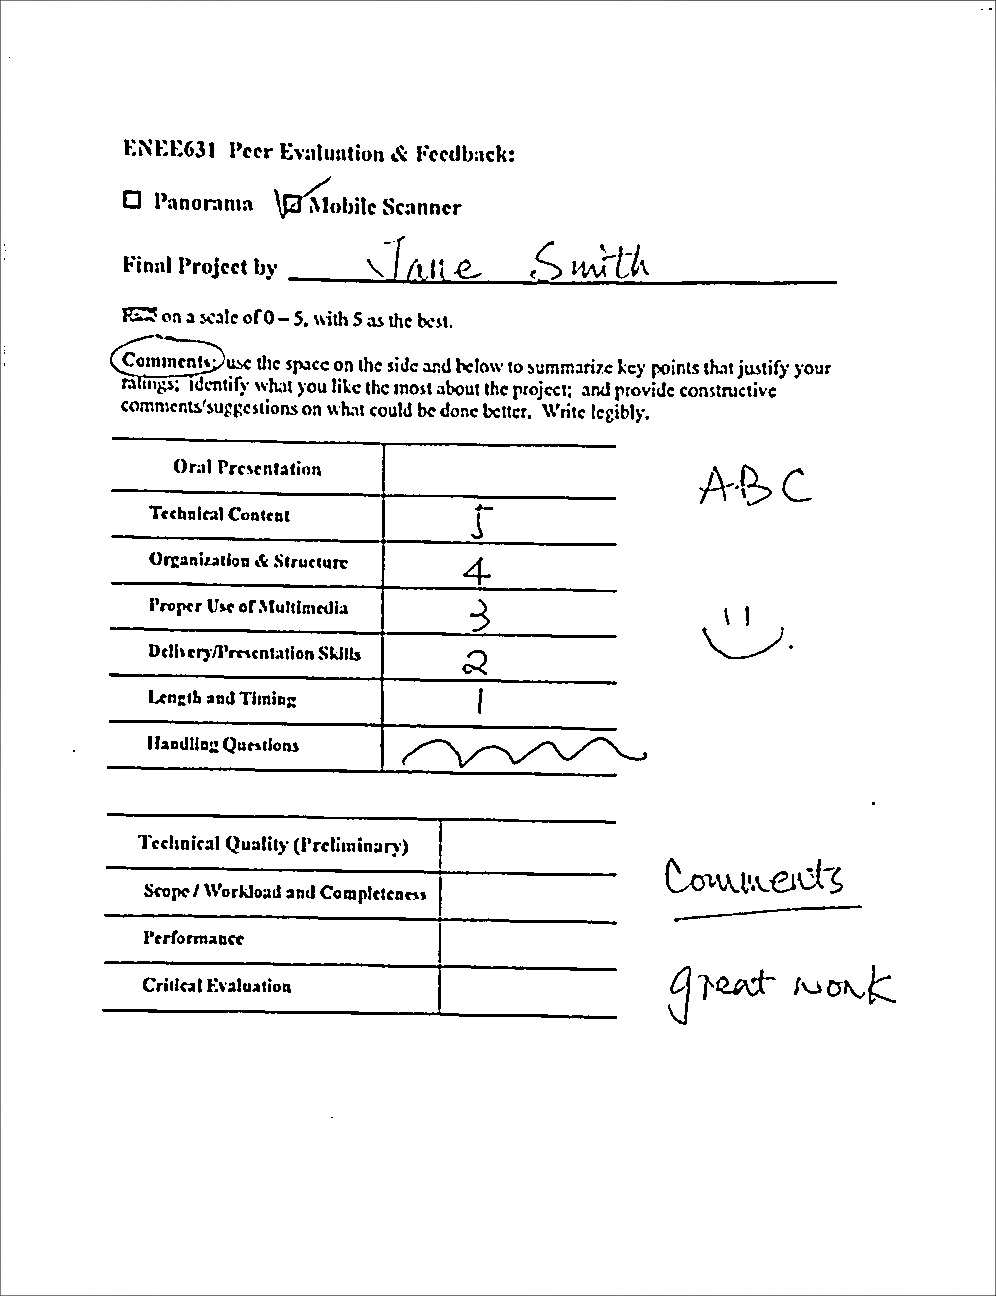 ENEE631 Peer Evaluation & Feedback:
Panorama Mobile Scanner
Final Project by Jane Smith
on a scale of 0 – 5, with 5 as the best.
Comments: use the space on the side and below to summarize key points that justify your
ratings; identify what you like the most about the project; and provide constructive
comments/suggestions on what could be done better. Write legibly.
Oral Presentation
ABC
Technical Content 5
Organization & Structure 4
Proper Use of Multimedia 3
Delivery/Presentation Skills 2
Length and Timing 1
Handling Questions
Technical Quality (Preliminary)
Scope / Workload and Completeness
Comments
Performance
Critical Evaluation
great work